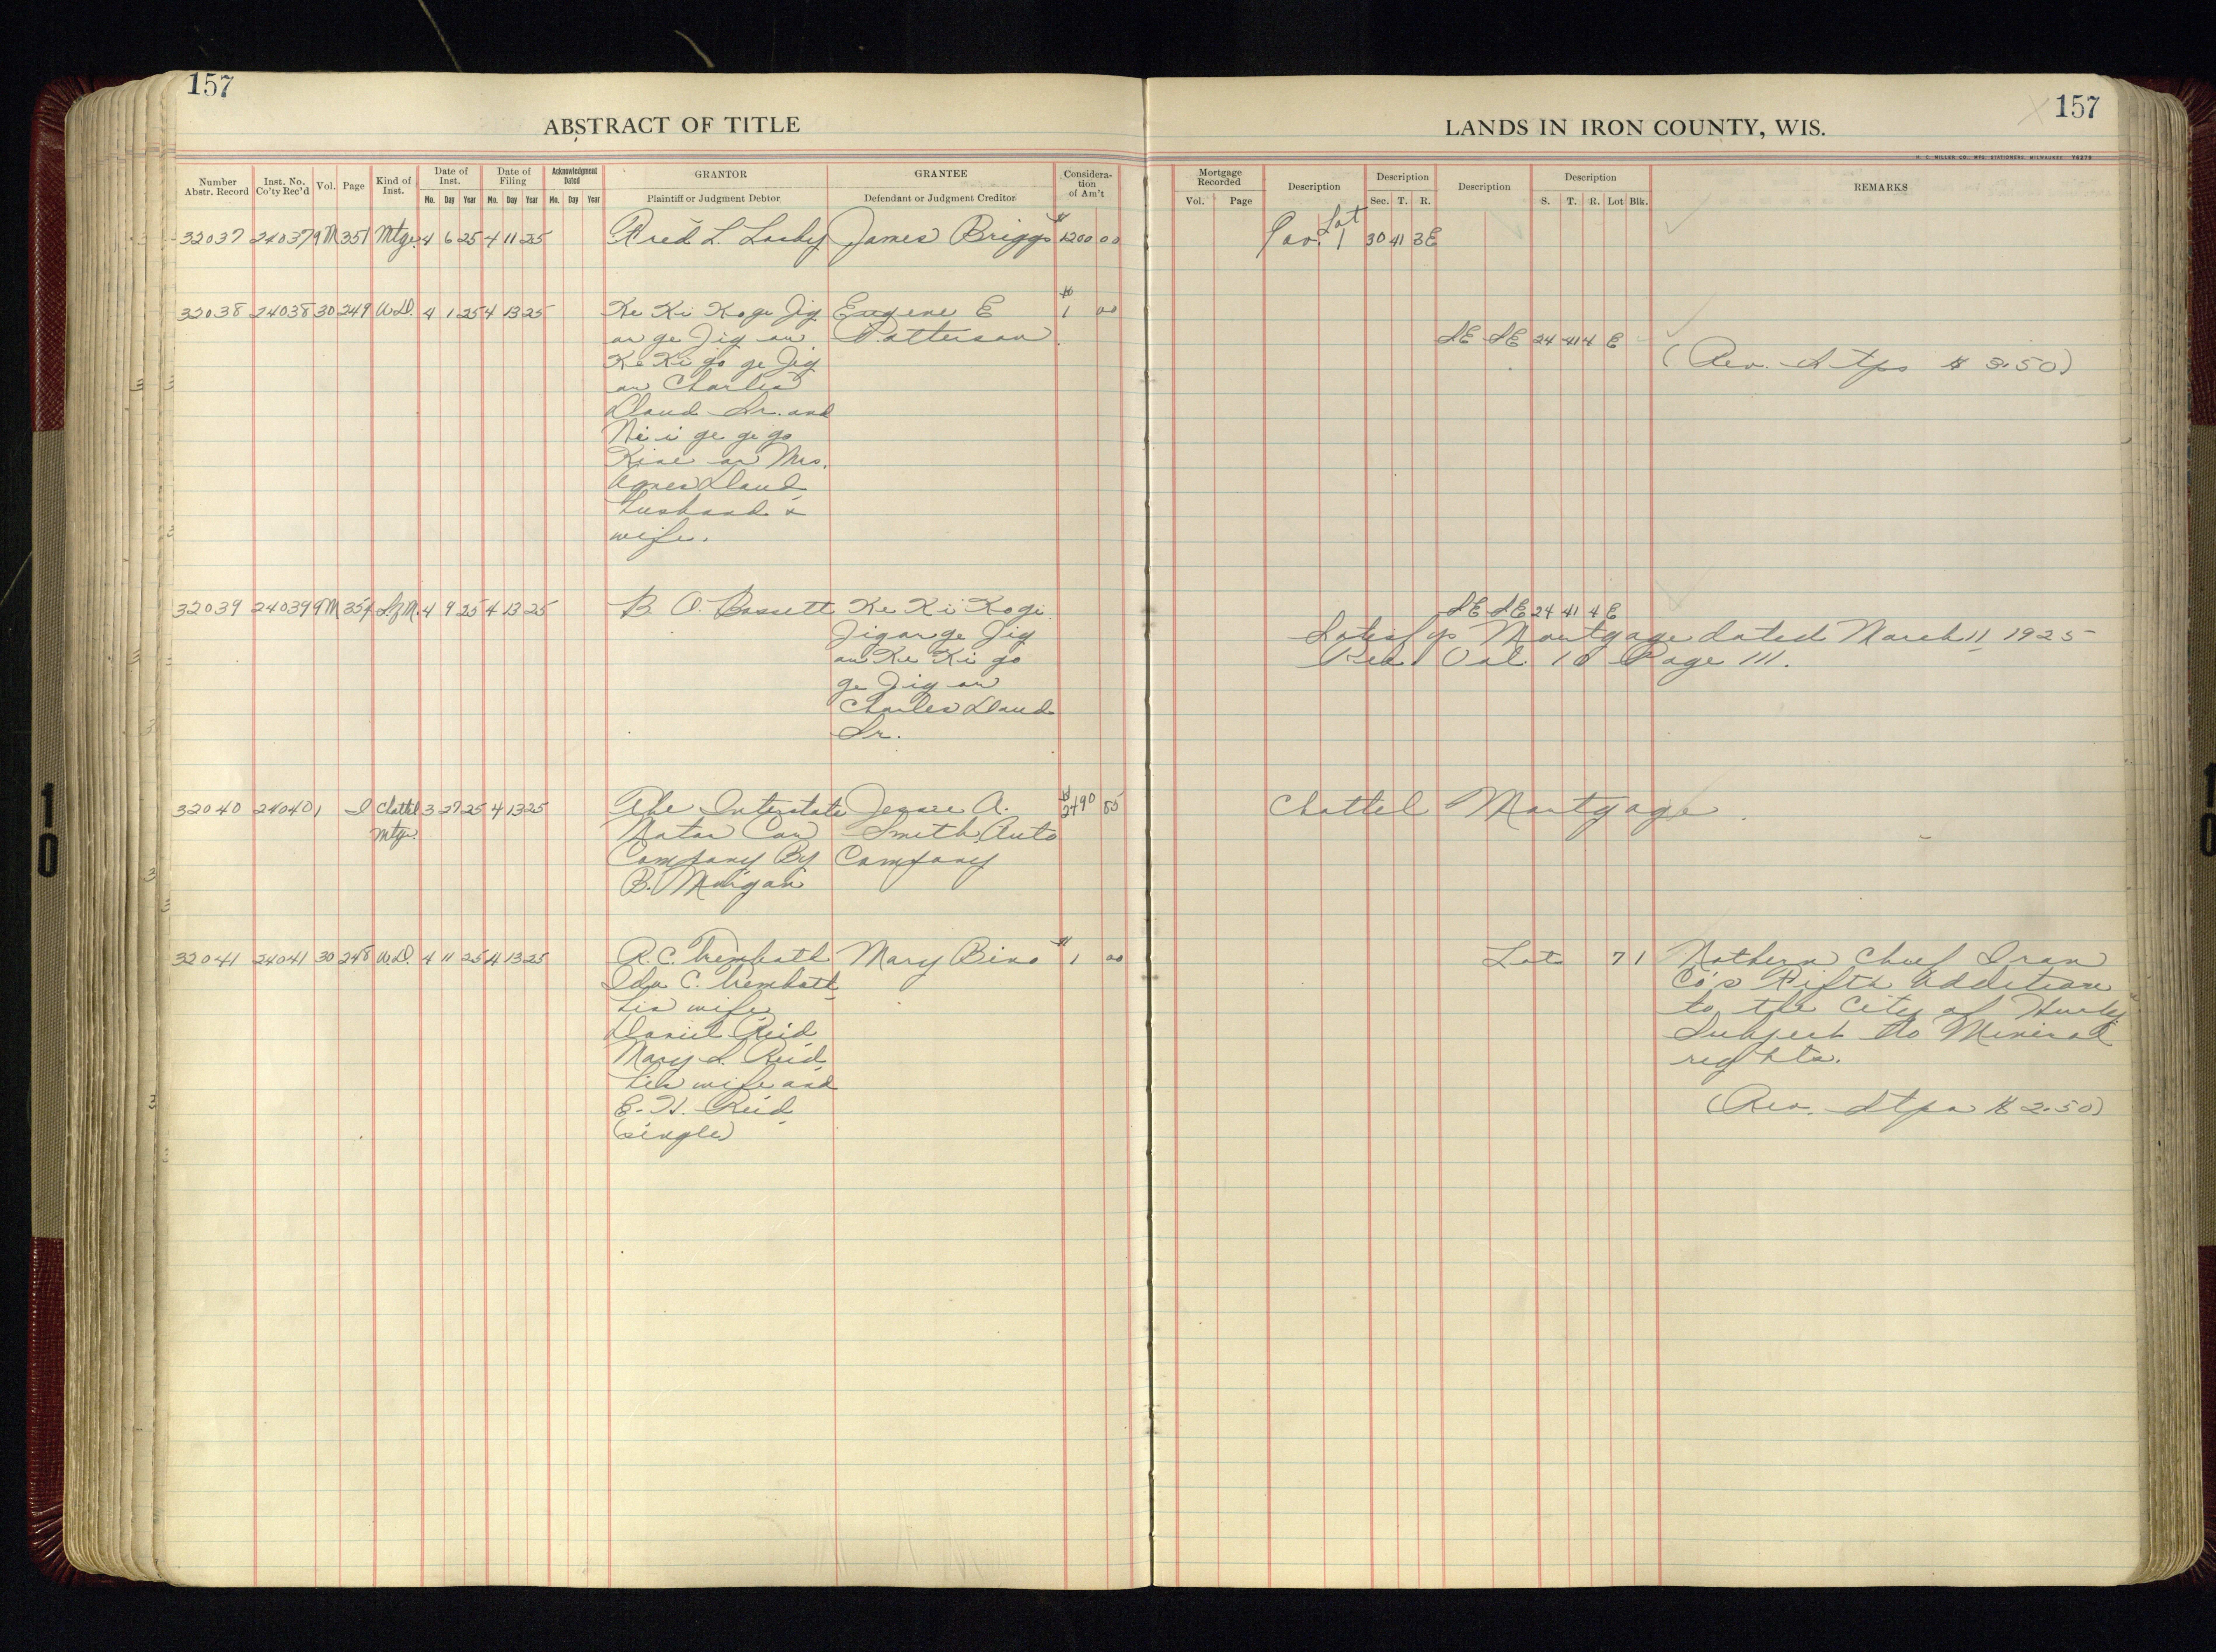 157
ABSTRACT OF TITLE
Number Abstr. Record
Inst. No. Co'ty Rec'd
Vol.
Page
Kind of Inst.
Date of Inst.
Mo. Day Year
Date of Filing
Mo. Day Year
Acknowledgment Dated
Mo. Day Year
GRANTOR
Plaintiff or Judgment Debtor
GRANTEE
Defendant or Judgment Creditor
Considera-
tion
of Am't
32037 24037 9M 351 Mtge. 4 6 25 4 11 25 Fred L. James Briggs $1200 00
32038 24038 30 249 W.D. 4 1 25 4 13 25 Ke Ki Ko ge Jig Eugene E $1 00
an ge Jig an Patterson
Ke Ki go ge Jig
an Charles
Sr. and
Ni i ge ge go
or Mrs.
Agnes
husband &
wife.
32039 24039 9M 354 4 9 25 4 13 25 B. O. Bassett Ke Ki Ko ge
Jig an ge Jig
an Ke Ki go
ge Jig an
Charles
Sr.
32040 24040 1 Chattel 3 27 25 4 13 25 The Interstate Jesse A. $2490
Mtge. Motor Car Smith Auto
Company By Company
B. Morgan
32041 24041 30 248 W.D. 4 11 25 4 13 25 R. C. Trembath Mary Bino $1 00
Ida C. Trembath
his wife
Daniel Reid
Mary L. Reid
his wife and
E. H. Reid
(single)
157
LANDS IN IRON COUNTY, WIS.
H. C. MILLER CO., MFG. STATIONERS, MILWAUKEE 76279
Mortgage Recorded
Vol. Page
Description
Description
Sec. T. R.
Description
Description
S. T. R. Lot Blk.
REMARKS
Gov. Lot 1 30 41 3E
SE SE 24 41 4 E
(Rev. Stps $3.50)
SE SE 24 41 4 E
Satisfys Mortgage dated March 11 1925
Rec Vol. 10 Page 111.
Chattel Mortgage
Lot 7 1 Nothern Chief Iron
Co's Fifth Addition
to the City of Hurley
Subject to Mineral
rights.
(Rev. Stps $2.50)